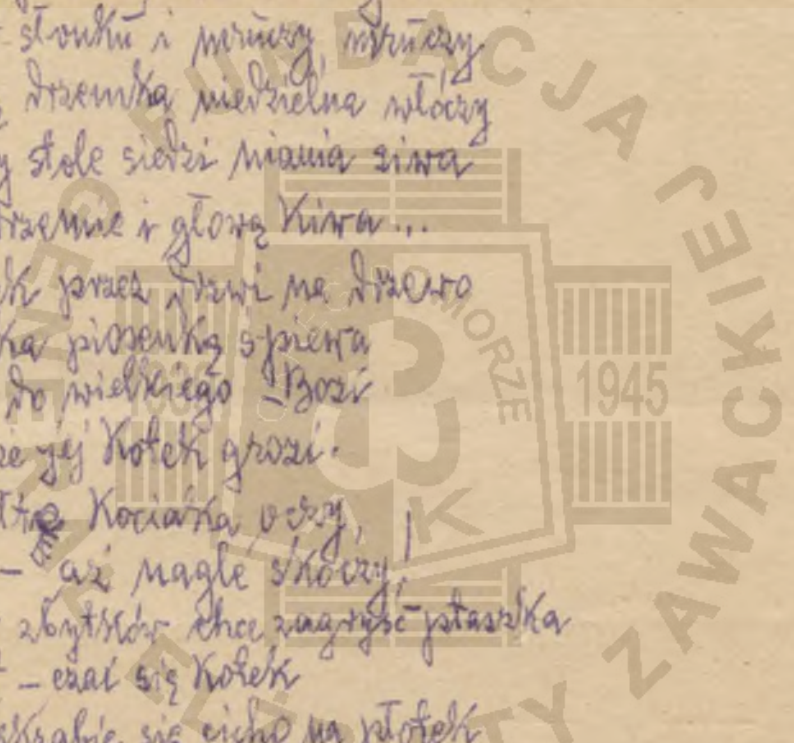 słonku i mruczy, mruczy
drzemka niedzielna włóczy
stole siedzi niania siwa
drzemie i głową Kiwa...
przez drzwi na drzewo
piosenkę śpiewa
do wielkiego Bozi
że jej Kotek grozi.
Kociaka oczy,
– aż nagle skoczy!
zbytków chce zagryść ptaszka
– czai się Kotek
się cicho na płotek
FUNDACJA GENERAŁ ELŻBIETY ZAWACKIEJ
POMORZE
1939
1945
AK